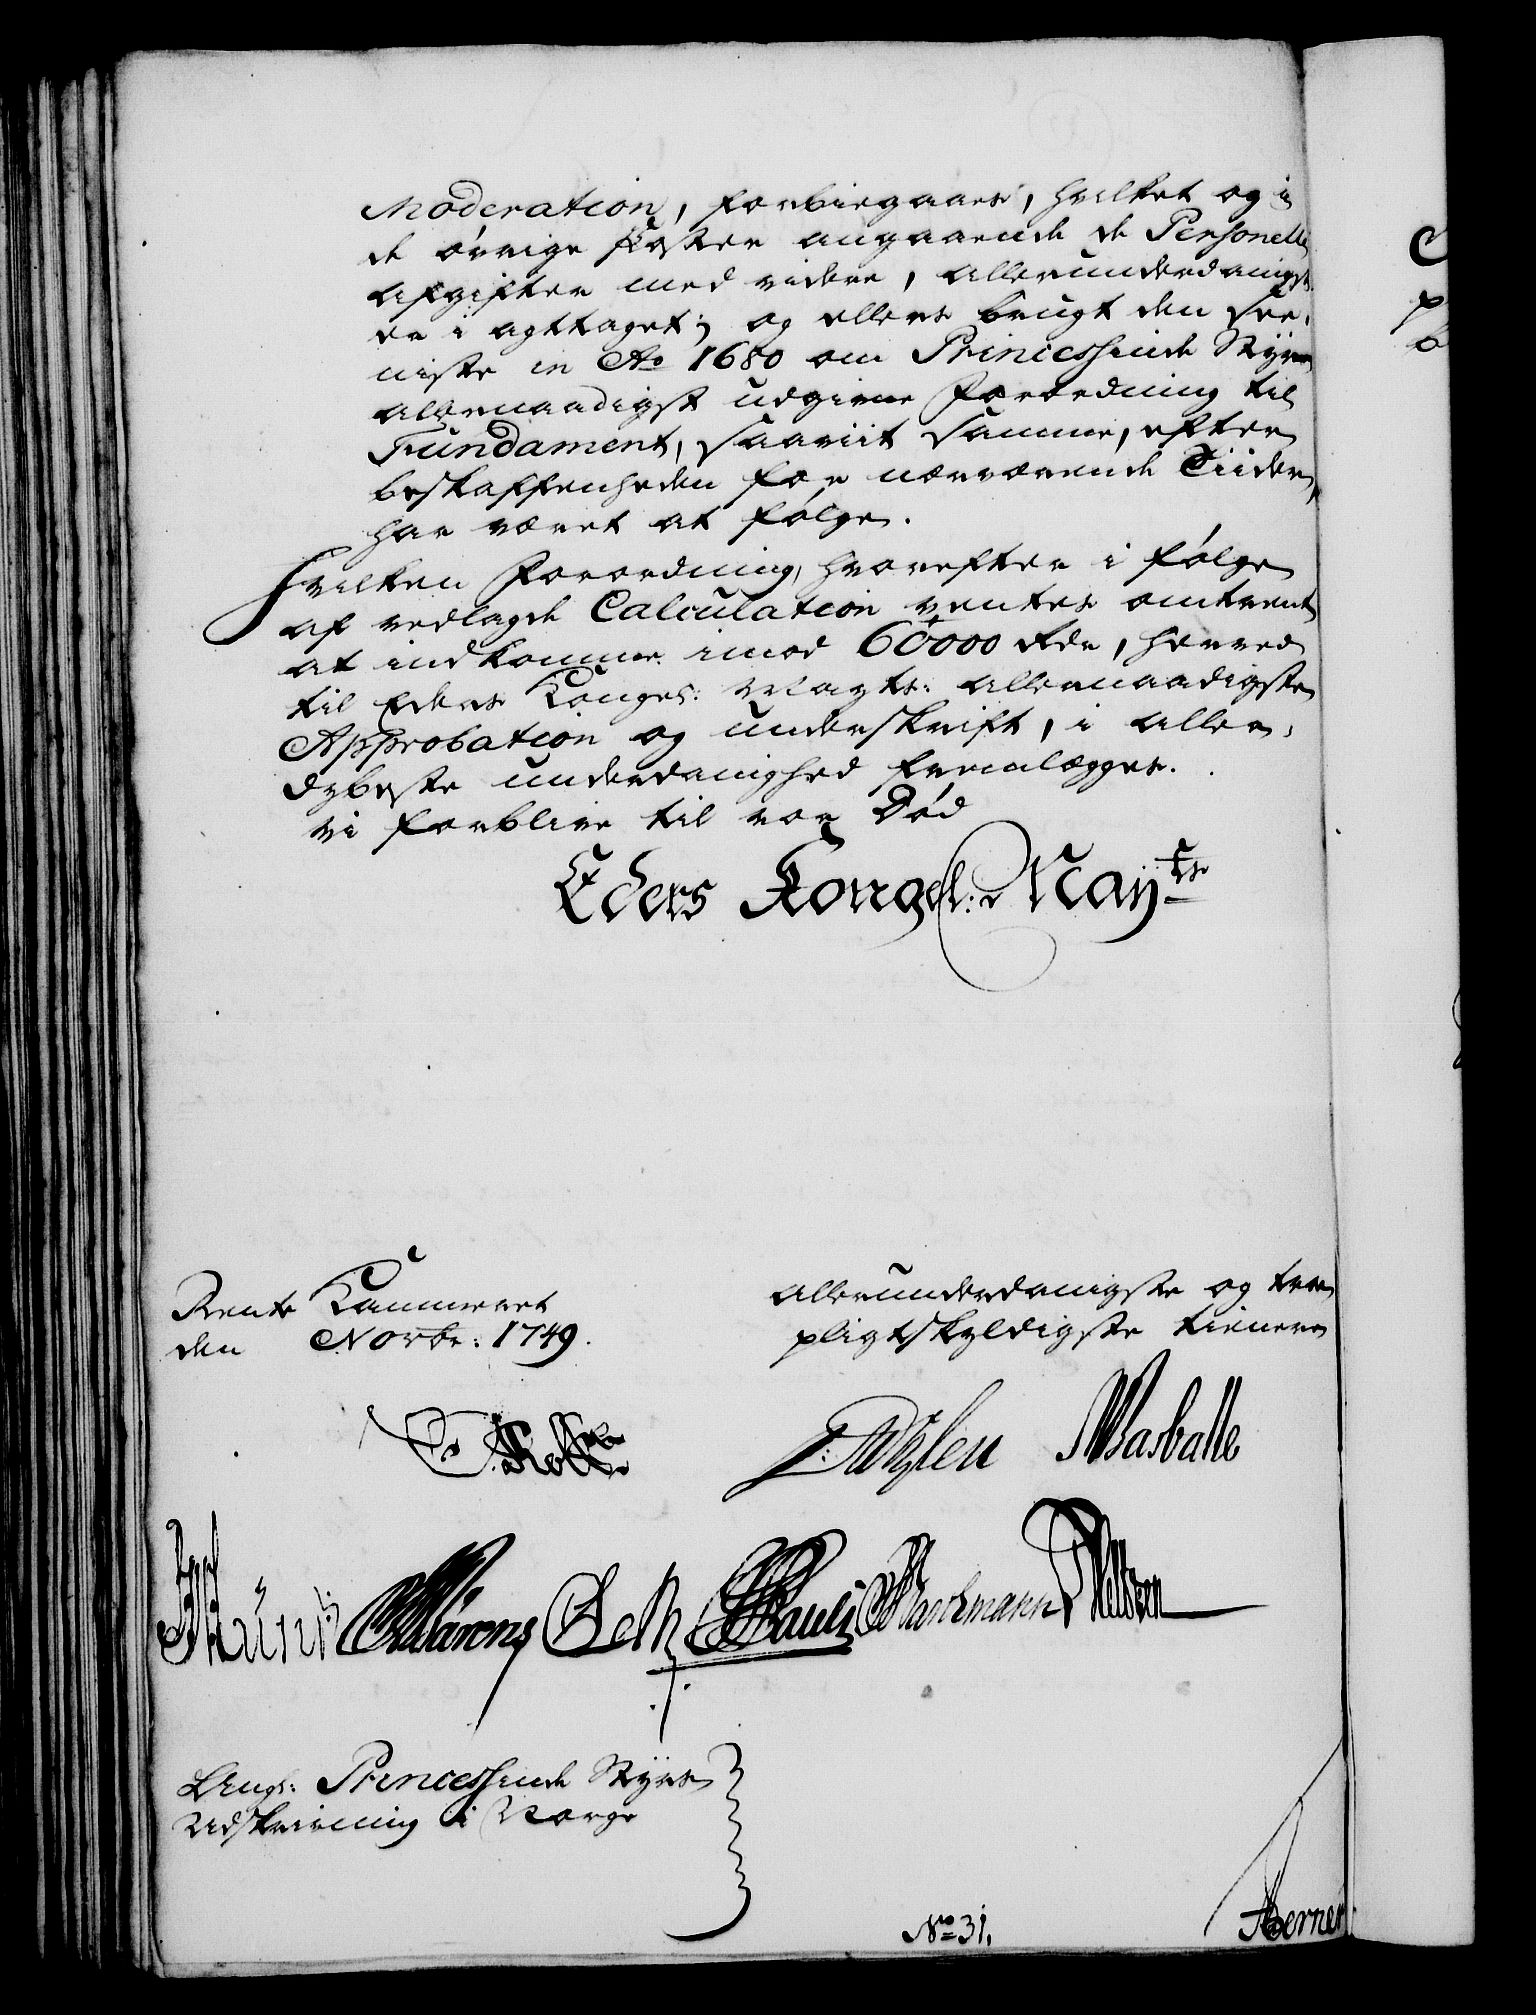 Moderation, forbiegaaes, hvilket og i
de øvrige Poster angaaende de Personelle
afgifter med videre, allerunderdanigst
er i agttaget; og ellers brugt den See-
niste in Ao 1680 om Princessinde Styr
allernaadigst udgivne Forordning til
Fundament, saaviit samme, efter
beskaffenheden for nærværende Tiider,
har været at følge.
Hvilken Forordning, hvorefter i følge
af vedlagde Calculation ventes omtrent
at indkomme imod 60000 Rdr, herved
til Eders Kongel: Mayts: allernaadigste
Approbation og underskrift, i aller-
dybeste underdanighed fremlægges.
vi forblive til vor Død
Eders Kongel: Mayts
Rente Kammeret
den Novbr: 1749.
allerunderdanigste og troe
pligtskyldigste tienere
Holst
Wylen Basballe
Pauli Marchmann Neltzen
Ang: Princessinde Styrs
Udskrivning i Norge
No 31.
Berner